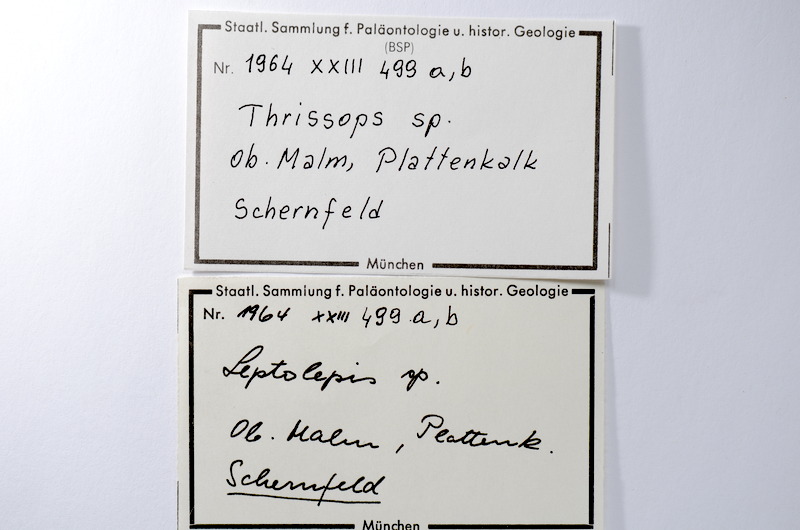 Staatl. Sammlung f. Paläontologie u. histor. Geologie
(BSP)
Nr. 1964 XXIII 499 a,b
Thrissops sp.
Ob. Malm, Plattenkalk
Schernfeld
München
Staatl. Sammlung f. Paläontologie u. histor. Geologie
Nr. 1964 XXIII 499 a,b
Leptolepis sp.
Ob. Malm, Plattenk.
Schernfeld
München